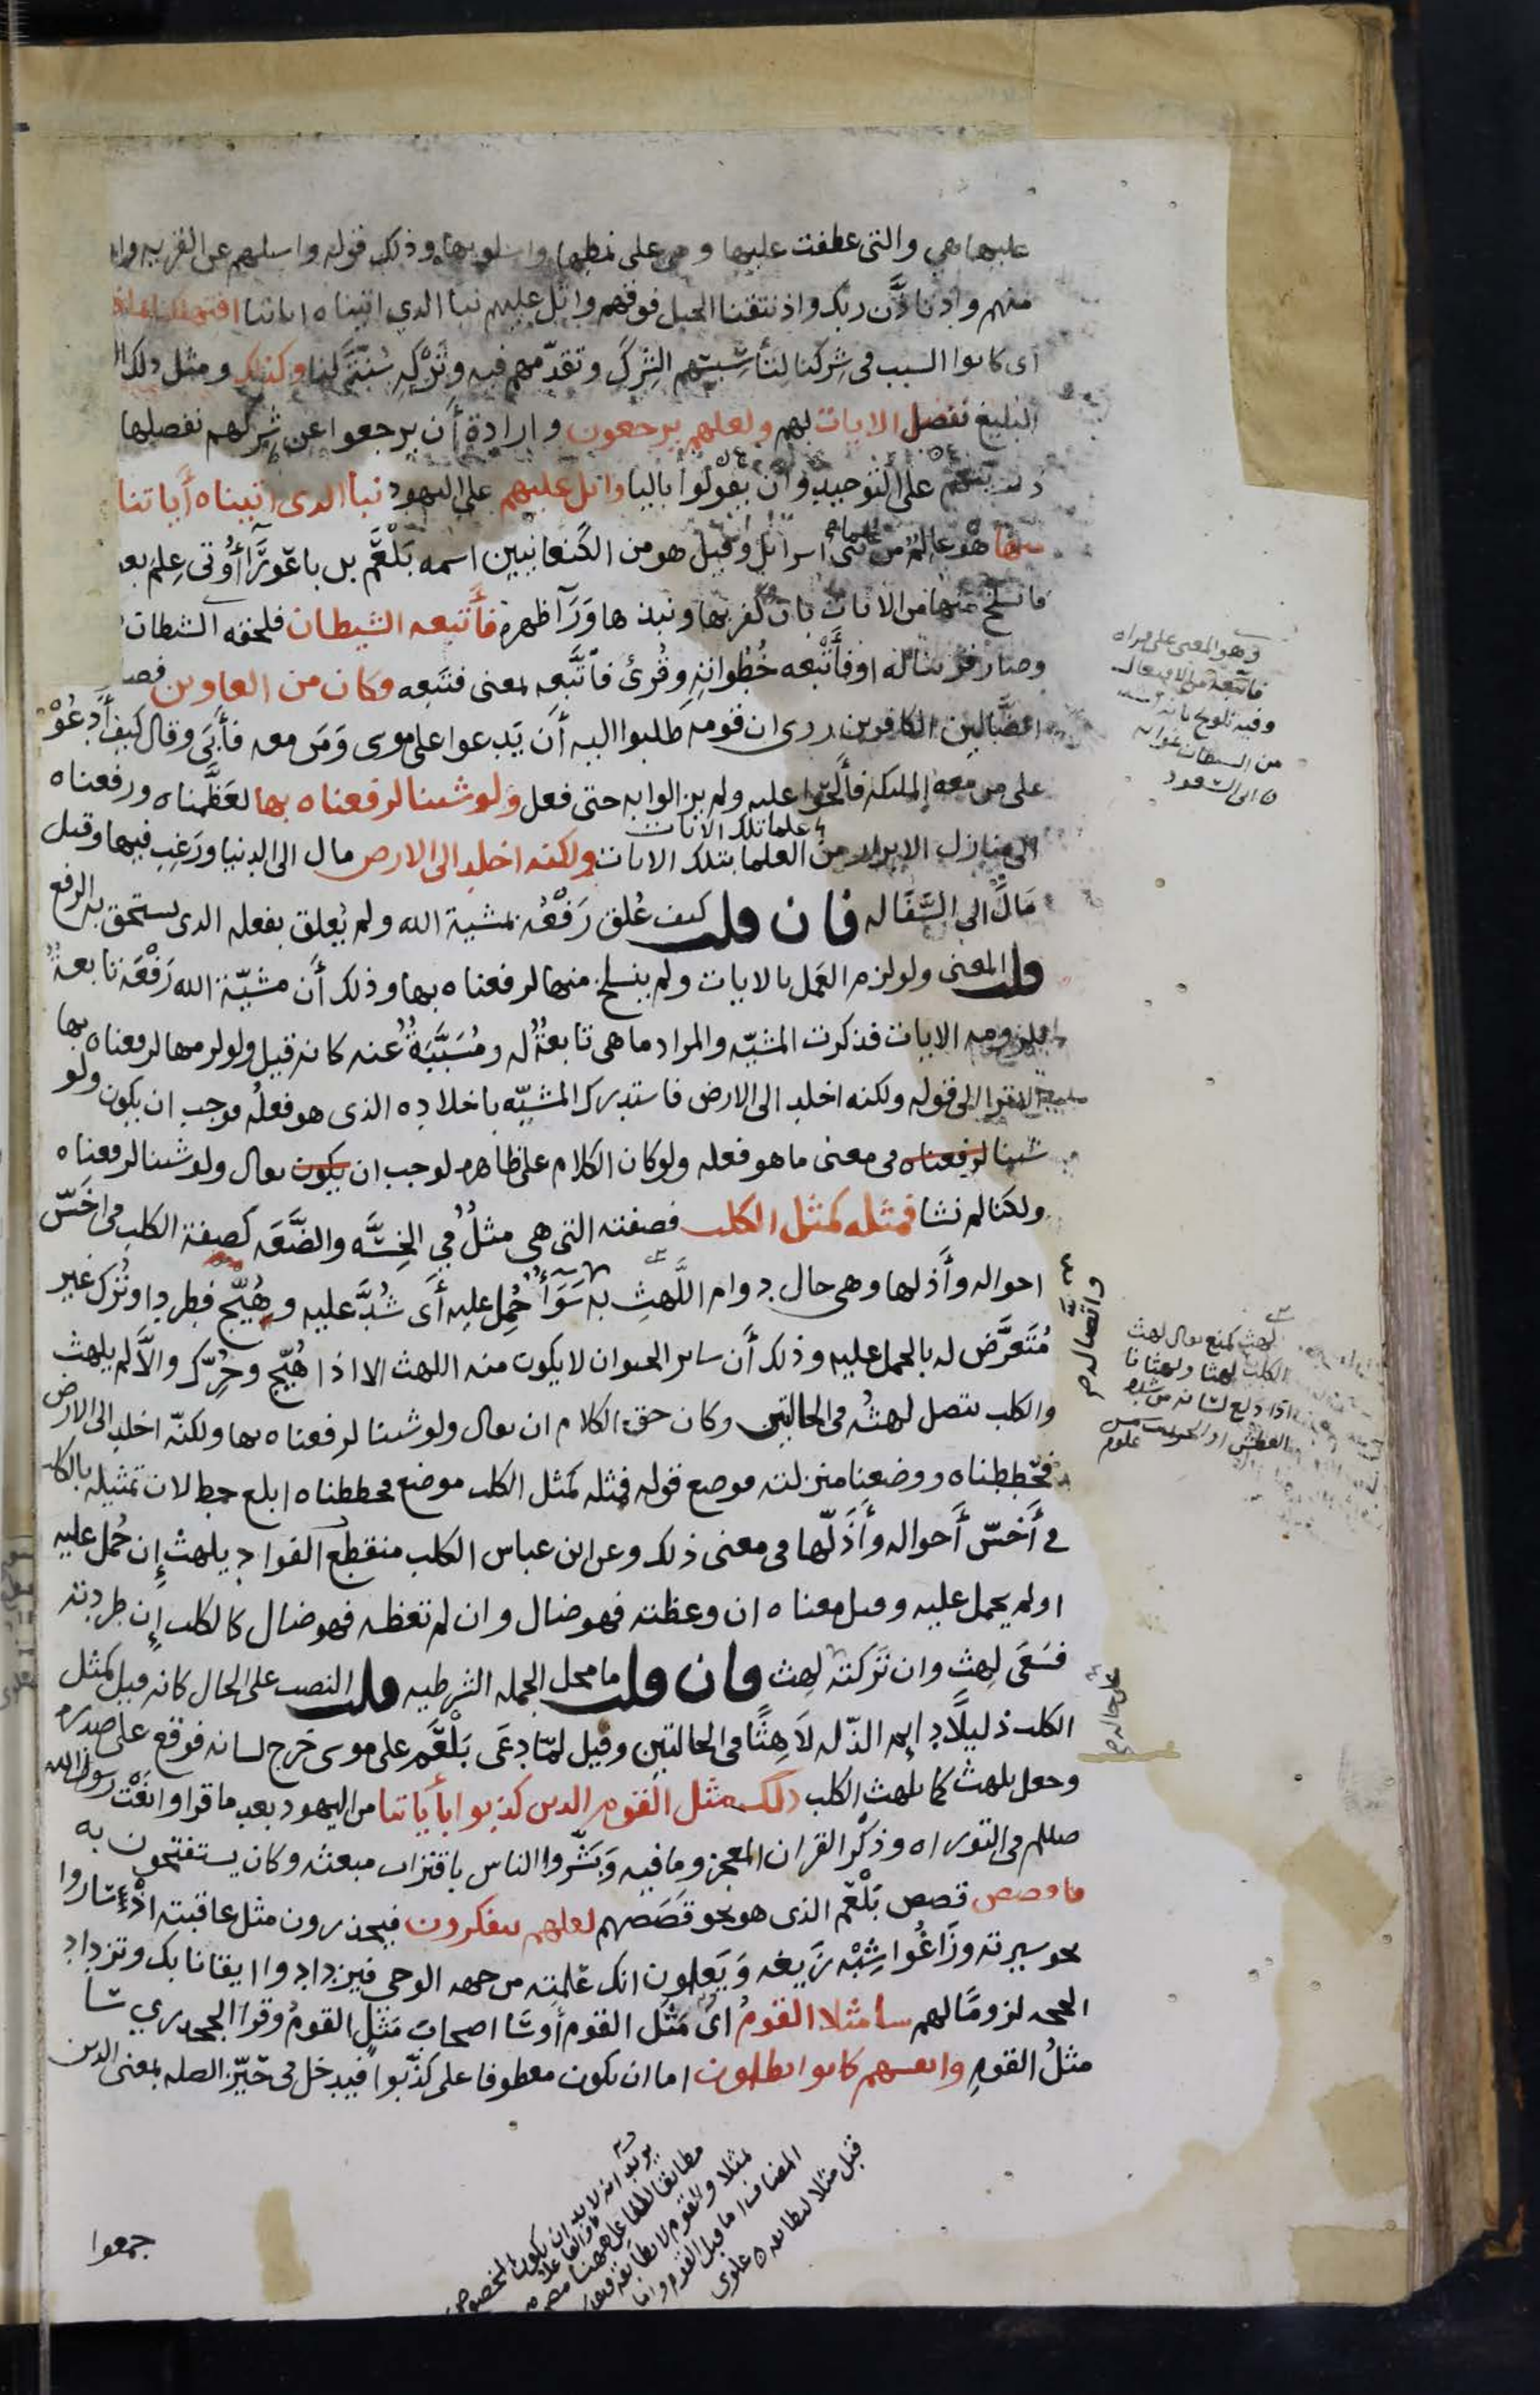 عليها هي والتى عطفت عليها وهى على نمطها واسلوبها وذلك قوله واسلهم عن القريه واذ
منهم واذ تاذَّن ربك واذ نتقنا الجبل فوقهم واتل عليهم نبا الدى اتيناه اياتنا افتهلكنا
اى كانوا السبب فى شركنا لتأسيسهم الشرك وتقدّمهم فيه وتَرْكِه سُنَّةً لنا وكذلك ومثل ذلك
البليغ نفصل الايات لهم ولعلهم يرجعون وارادة أن يرجعوا عن شركهم نفصلها
على التوحيد وان يقولوا باليا واتل عليهم على اليهود نبأ الدى اتيناه أياتنا
هو عالم من علماء بنى اسرايل وقيل هو من الكنعانيين اسمه بَلْعَم بن باعورَاء أوتى عِلم بعض
فانسلخ منها من الايات بان كفر بها ونبذها وَرَآ ظهره فأَتبعه الشيطان فلحقه الشيطان
وصار قرينا له او فأَتْبعه خُطُواتِه وقُرئ فاتَّبَعه بمعنى فتَبعه وكان من الغاوين فصار
الضَّالين الكافرين روى ان قومه طلبوا اليه أن يَدعوا على موسى وَمَن معه فأَبَى وقال كيف أَدعُوْ
على من معه الملئكه فأَلحّوا عليه ولم يزالوا به حتى فعل ولو شينا لرفعناه بها لعَظَّمناه ورفعناه
الى منازل الابرار من العلما بتلك الايات ولكنه اخلد الى الارص مال الى الدنيا ورَغِب فيها وقيل
مَالَ الى السَّفَاله فان قلت كيف عُلق رَفْعُه بمشية الله ولم يُعلق بفعله الدى يستحق به الرفع
قلت المعنى ولو لزم العَمل بالايات ولم ينسلخ منها لرفعناه بها وذلك أن مشيّة الله رَفْعَه تابعةٌ
للزومه الايات فذكرت المشيّه والمراد ما هى تابعةٌ له ومُسَبَّبَةٌ عنه كانه قيل ولو لزمها لرفعناه بها
الاترا الى قوله ولكنه اخلد الى الارض فاستدرك المشيّه باخلاده الذى هو فعلُه فوجب ان يكون ولو
شينا لرفعناه فى معنى ما هو فعله ولو كان الكلام على ظاهره لوجب ان يكون يعال ولو شينا لرفعناه
ولكنا لم نشا فمثله كمثل الكلب فصفته التى هى مثلٌ في الخِسَّه والضَّعَه كصفة الكلب فى اخَسّ
احواله وأَذلها وهى حال دوام اللَّهث به سَوَآءٌ حُمِل عليه أَى شُدَّ عليه وهُيّج فطرد او تُرك غير
مُتَعرَّض له بالحمل عليه وذلك أَن ساير الحيوان لا يكون منه اللهث الا اذا هُيّج وحُرّك والاَّ لم يلهث
والكلب يتصل لهثُه فى الحالتين وكان حق الكلام ان يعال ولو شينا لرفعناه بها ولكنّه اخلد الى الارض
فحططناه ووضعنا منزلته فوضع قوله فمثله كمثل الكلب موضع فحططناه ابلغ حط لان تمثيله بالكلب
في أَخَسّ أَحواله وأَذَلّها فى معنى ذلك وعن ابن عباس الكلب منقطع الفواد يلهث إن حُمل عليه
او لم يحمل عليه وقيل معناه ان وعظته فهو ضال وان لم تعظه فهو ضال كالكلب إن طردته
فسَعَى لهث وان تَرَكته لهث فان قلت ما محل الجمله الشرطيه قلت النصب على الحال كانه قيل كمثل
الكلب ذليلًا دايم الذّله لاَهِثًا فى الحالتين وقيل لمّا دعَى بَلْعَم على موسى خرج لسانه فوقع على صدره
وجعل يلهث كما يلهث الكلب ذلك مثل القوم الدين كذبوا بأياتنا من اليهود بعد ما قراوا نعْت رسول الله
صللم فى التوراه وذكْر القران المعجز وما فيه وَبَشَّروا الناس باقتراب مبعثه وكان يستفتحون به
فاقصص قصص بَلْعَم الذى هو نحو قَصَصهم لعلهم يتفكرون فيحذرون مثل عاقبته اذْ سَاروا
نحو سيرته وزَاغُوا شِبْه زَيغه وَيَعلمون انك عَلِمته من جهه الوحى فيزدادوا ايقانا بك وتزداد
الحجه لزومًا لهم سا مثلا القومُ اى مَثَل القوم أو سَا اصحاب مَثَل القومُ وقرا الجحدري سَا
مثلُ القومِ وانفسهم كانوا يظلمون اما ان يكون معطوفا على كذّبوا فيدخل فى حَيّز الصله بمعنى الدين
جمعوا
وهو المعنى على قراه
فاتبعه من الافتعال
من الشيطان
ابى السعود
واتصاله
لهث كمنع يعال لهث
الكلب لهثا ولهثانا
اذا دلع لسانه من شده
العطش او الحر
على حاله
يريد انه لا بد ان يكون المخصوص
مطابقا للفاعل
المضاف اما قبل القوم
قبل مثلا لمطابقه علوى